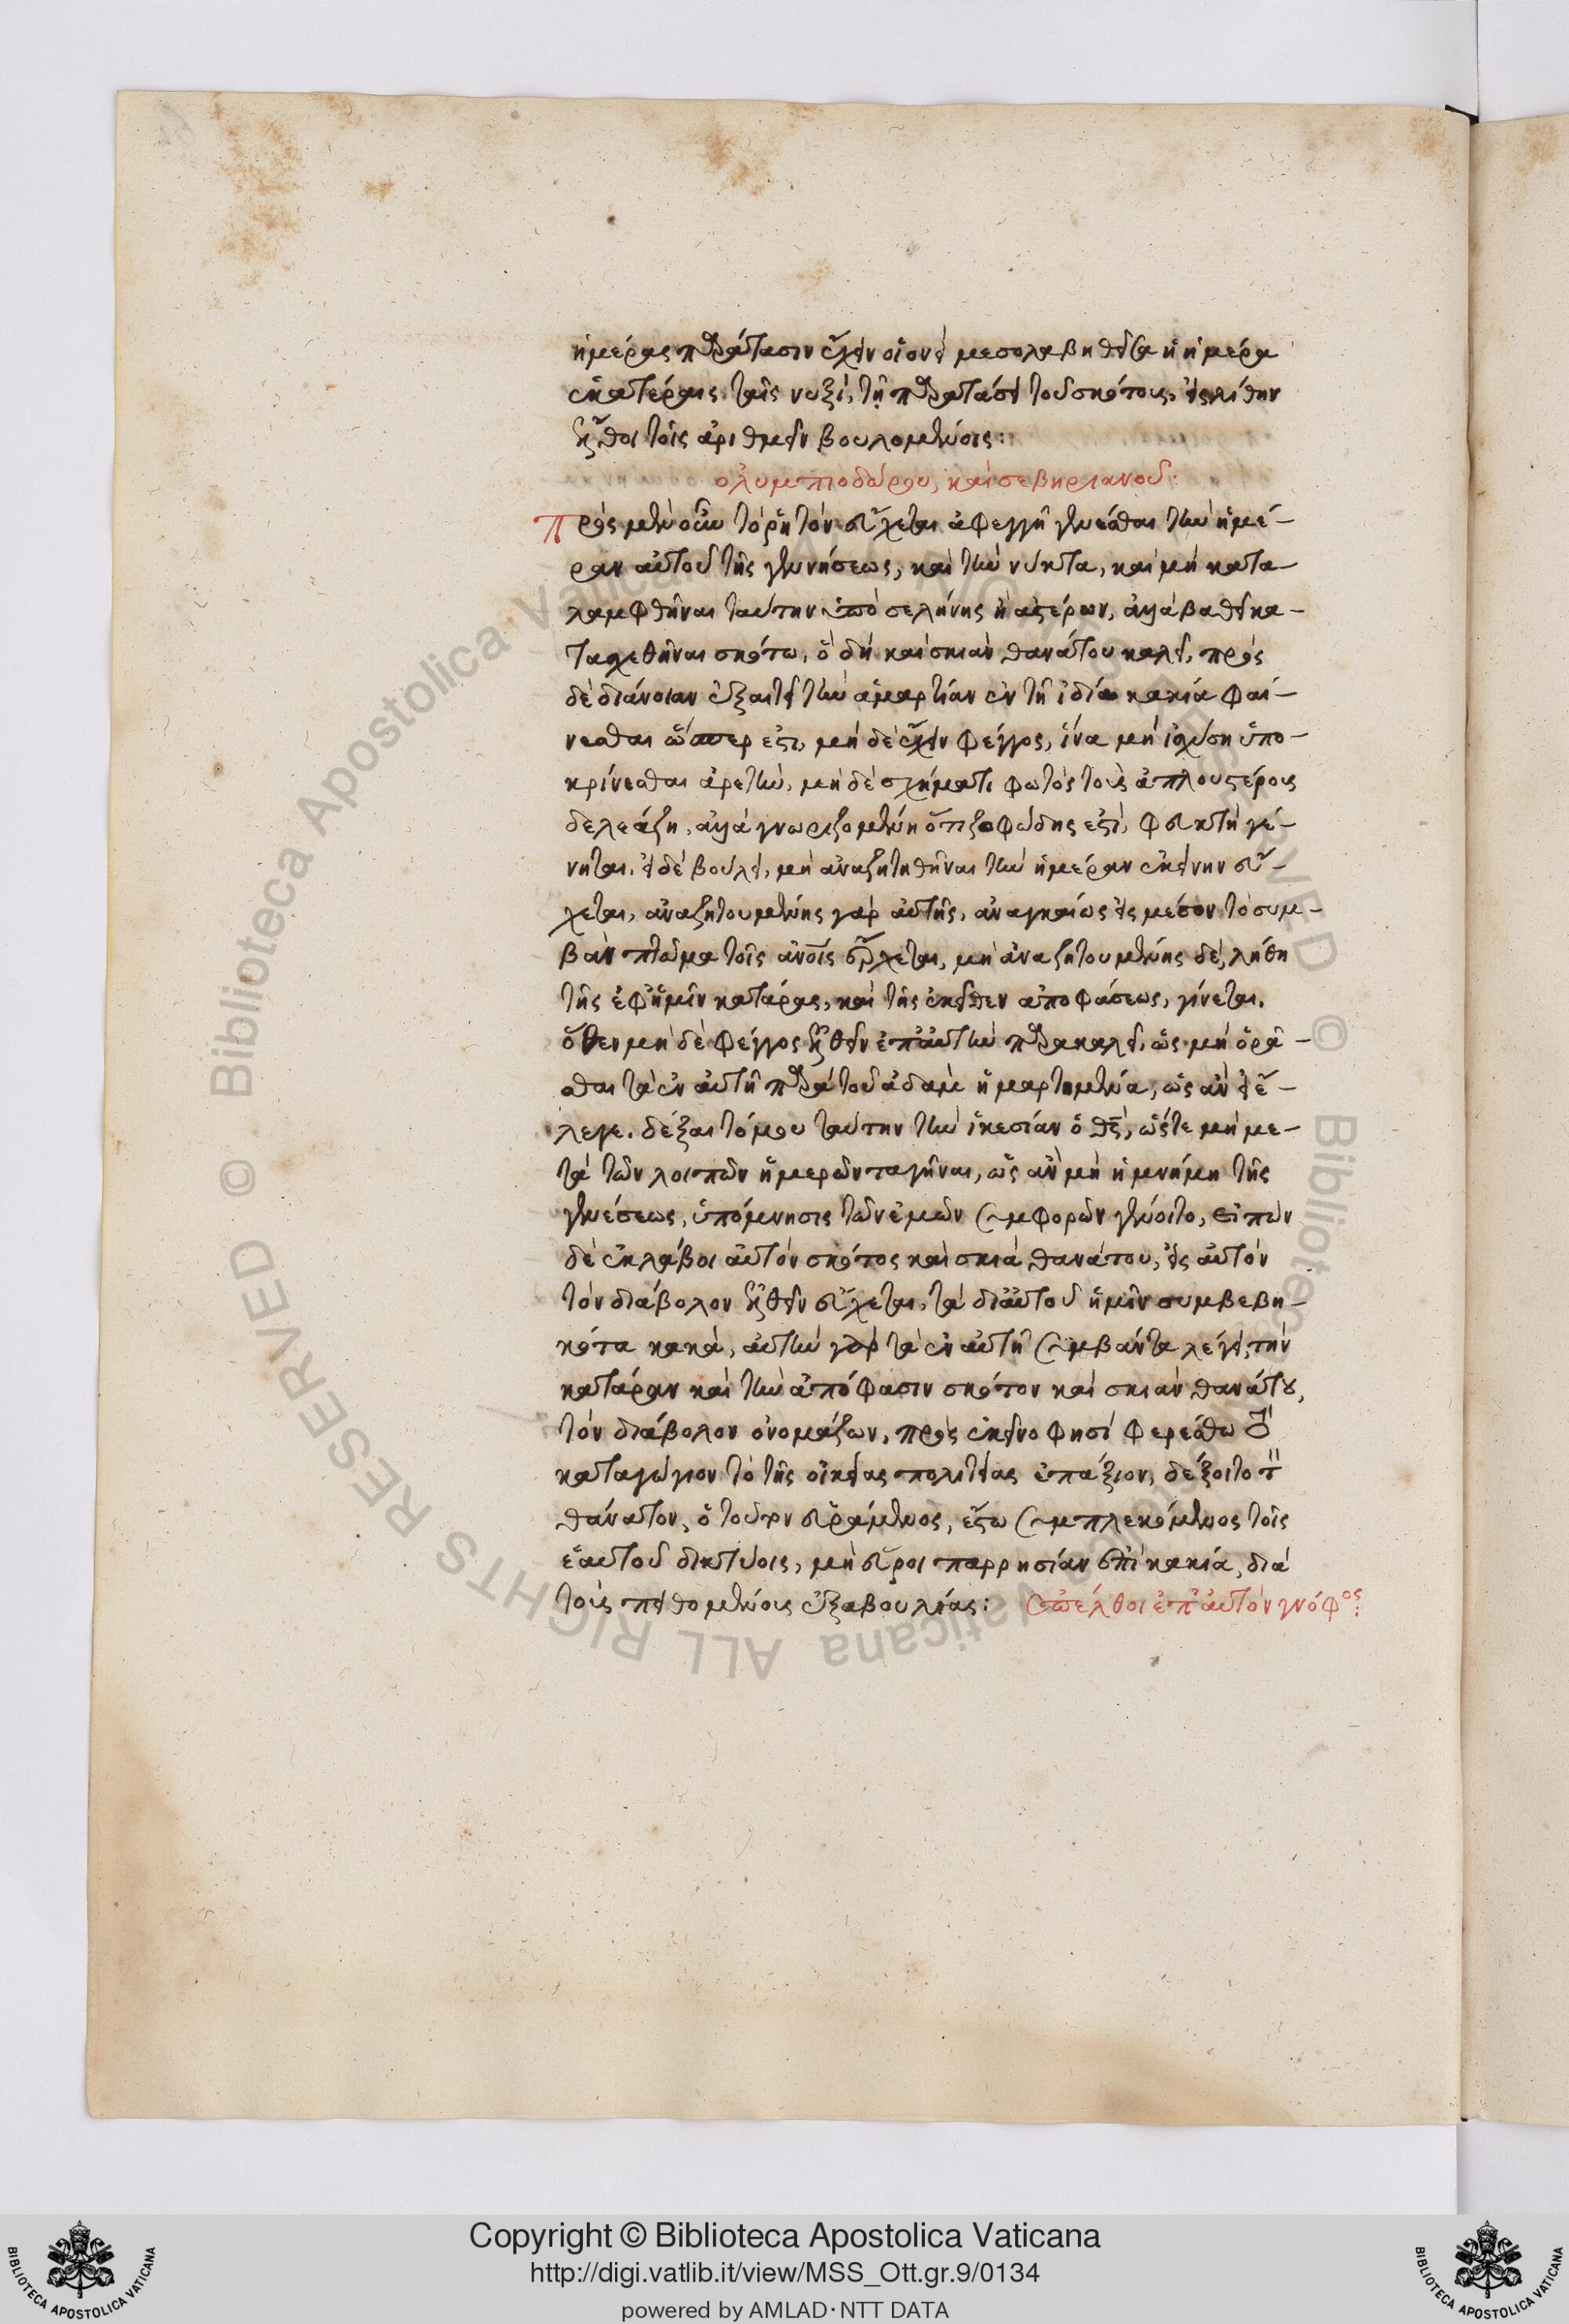 ἡμέρας παράτασιν ἔχειν οἱονεὶ μεσολαβηθεῖσα ἡ ἡμέρα
ἑκατέραις ταῖς νυξὶ, τῇ παρατάσει τοῦ σκότους, εἰς λήθην
ἔλθοι τοῖς ἀριθμεῖν βουλομένοις:
ὀλυμπιοδώρου, καὶ σεβηριανοῦ:
Πρὸς μὲν οὖν τὸ ῥητὸν εὔχεται ἀφεγγῆ γενέσθαι τὴν ἡμέ-
ραν αὐτοῦ τῆς γεννήσεως, καὶ τὴν νύκτα, καὶ μὴ κατα-
λαμφθῆναι ταύτην ὑπὸ σελήνης ἢ ἀστέρων, ἀλλὰ βαθεῖ κα-
τασχεθῆναι σκότω, ὃ δὴ καὶ σκιὰν θανάτου καλεῖ, πρὸς
δὲ διάνοιαν εὔξαιτο τὴν ἁμαρτίαν ἐν τῇ ἰδία κακία φαί-
νεσθαι ὥσπερ ἐστι, μὴ δὲ ἔχειν φέγγος, ἵνα μὴ ἰσχύση ὑπο-
κρίνεσθαι ἀρετὴν, μὴ δὲ σχήματι φωτὸς τοὺς ἁπλουστέρους
δελεάζη, ἀλλὰ γνωριζομένη ὅτι ζοφώδης ἐστὶ, φευκτὴ γέ-
νηται. εἰ δὲ βούλει, μὴ ἀναζητηθῆναι τὴν ἡμέραν ἐκείνην εὔ-
χεται, ἀναζητουμένης γὰρ αὐτῆς, ἀναγκαίως εἰς μέσον τὸ συμ-
βὰν πτῶμα τοῖς ἀνοῖς ἔρχεται, μὴ ἀναζητουμένης δὲ, λήθη
τῆς ἐφ' ἡμῖν κατάρας, καὶ τῆς ἐκεῖθεν ἀποφάσεως, γίνεται.
ὅθεν μὴ δὲ φέγγος ἐλθεῖν ἐπ' αὐτὴν παρακαλεῖ, ὡς μὴ ὁρᾶ-
σθαι τὰ ἐν αὐτῇ παρὰ τοῦ ἀδὰμ ἡμαρτημένα, ὡς ἂν εἰ ἔ-
λεγε. δέξαι τό μου ταύτην τὴν ἱκεσίαν ὁ θς, ὥστε μὴ με-
τὰ τῶν λοιπῶν ἡμερῶν ταγῆναι, ὡς ἂν μὴ ἡ μνήμη τῆς
γενέσεως, ὑπόμνησις τῶν ἐμῶν συμφορῶν γένοιτο, εἰπὼν
δὲ ἐκλάβοι αὐτὸν σκότος καὶ σκιὰ θανάτου, εἰς αὐτὸν
τὸν διάβολον ἐλθεῖν εὔχεται, τὰ δι' αὐτοῦ ἡμῖν συμβεβη-
κότα κακὰ, αὐτὴν γὰρ τὰ ἐν αὐτῇ συμβάντα λέγει, τὴν
κατάραν καὶ τὴν ἀπόφασιν σκότον καὶ σκιὰν θανάτου,
τὸν διάβολον ὀνομάζων, πρὸς ἐκεῖνο φησὶ φερέσθω
καταγώγιον τὸ τῆς οἰκείας πολιτείας ἐπάξιον, δέξοιτο τὸν
θάνατον, ὁ τοῦτον εὑράμενος, ἔξω συμπλεκόμενος τοῖς
ἑαυτοῦ δικτύοις, μὴ εὕροι παρρησίαν ἐπὶ κακία, διὰ
τοῖς πειθομένοις
ἐπέλθοι ἐπ' αὐτὸν γνόφος:
Copyright © Biblioteca Apostolica Vaticana
http://digi.vatlib.it/view/MSS_Ott.gr.9/0134
powered by AMLAD·NTT DATA
BIBLIOTECA APOSTOLICA VATICANA
BIBLIOTECA APOSTOLICA VATICANA